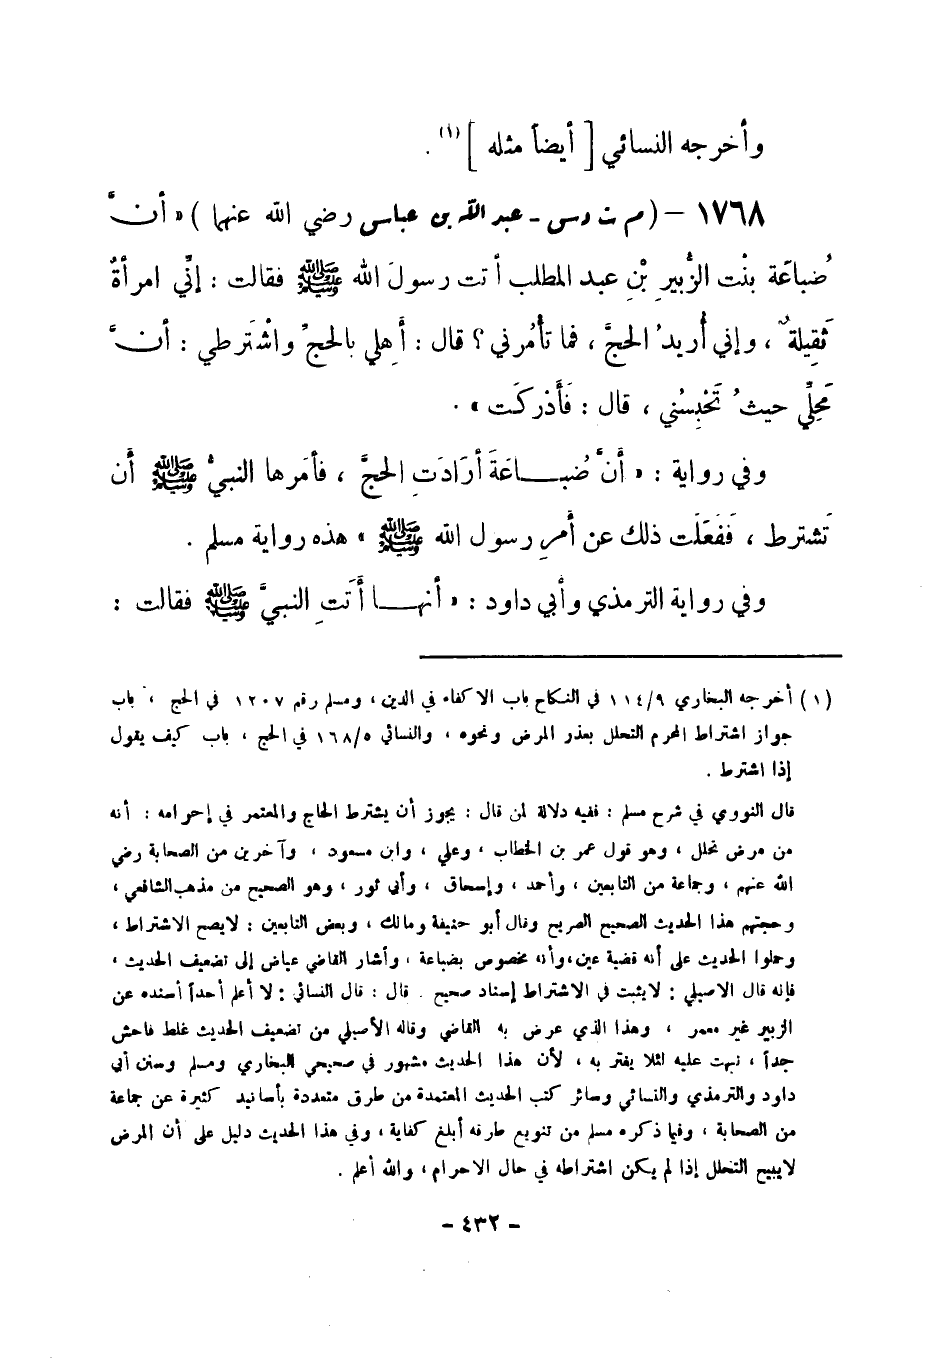 وأخرجه النسائي [ أيضاً مثله ] (١) .
١٧٦٨ – ( م ت د س - عبد الله بن عباس رضي الله عنهما ) « أنَّ
ضُباعَة بنْت الزُّبيرِ بْنِ عبد المطلب أتت رسولَ الله ﷺ فقالت : إنِّي امرأةٌ
ثَقِيلةٌ ، وإني أُريدُ الحجَّ ، فما تأمُرني ؟ قال : أَهِلي بالحجِّ واشْتَرطي : أنَّ
مَحِلِّي حيثُ تَحْبِسُني ، قال : فَأَدْركَت » .
وفي رواية : « أَنَّ ضُباعَةَ أرَادَتِ الحجَّ ، فأمَرها النبيُّ ﷺ أن
تَشترط ، فَفَعَلَت ذلك عن أَمرِ رسول الله ﷺ » هذه رواية مسلم .
وفي رواية الترمذي وأبي داود : « أنها أَتَتِ النبيَّ ﷺ فقالت :
(١) أخرجه البخاري ١١٤/٩ في النكاح باب الاكفاء في الدين ، ومسلم رقم ١٢٠٧ في الحج ، باب
جواز اشتراط المحرم التحلل بعذر المرض ونحوه ، والنسائي ١٦٨/٥ في الحج ، باب كيف يقول
إذا اشترط .
قال النووي في شرح مسلم : ففيه دلالة لمن قال : يجوز أن يشترط الحاج والمعتمر في إحرامه : أنه
من مرض تحلل ، وهو قول عمر بن الخطاب ، وعلي ، وابن مسعود ، وآخرين من الصحابة رضي
الله عنهم ، وجماعة من التابعين ، وأحمد ، وإسحاق ، وأبي ثور ، وهو الصحيح من مذهب الشافعي ،
وحجتهم هذا الحديث الصحيح الصريح وقال أبو حنيفة ومالك ، وبعض التابعين : لا يصح الاشتراط ،
وحملوا الحديث على أنه قضية عين ، وأنه مخصوص بضباعة ، وأشار القاضي عياض إلى تضعيف الحديث ،
فإنه قال الاصيلي : لا يثبت في الاشتراط إسناد صحيح . قال : قال النسائي : لا أعلم أحداً أسنده عن
الزبير غير معمر ، وهذا الذي عرض به القاضي وقاله الأصيلي من تضعيف الحديث غلط فاحش
جداً ، نبهت عليه لئلا يغتر به ، لأن هذا الحديث مشهور في صحيحي البخاري ومسلم وسنن أبي
داود والترمذي والنسائي وسائر كتب الحديث المعتمدة من طرق متعددة بأسانيد كثيرة عن جماعة
من الصحابة ، وفيما ذكره مسلم من تنويع طرقه أبلغ كفاية ، وفي هذا الحديث دليل على أن المرض
لا يبيح التحلل إذا لم يكن اشتراطه في حال الاحرام ، والله أعلم .
- ٤٣٢ -